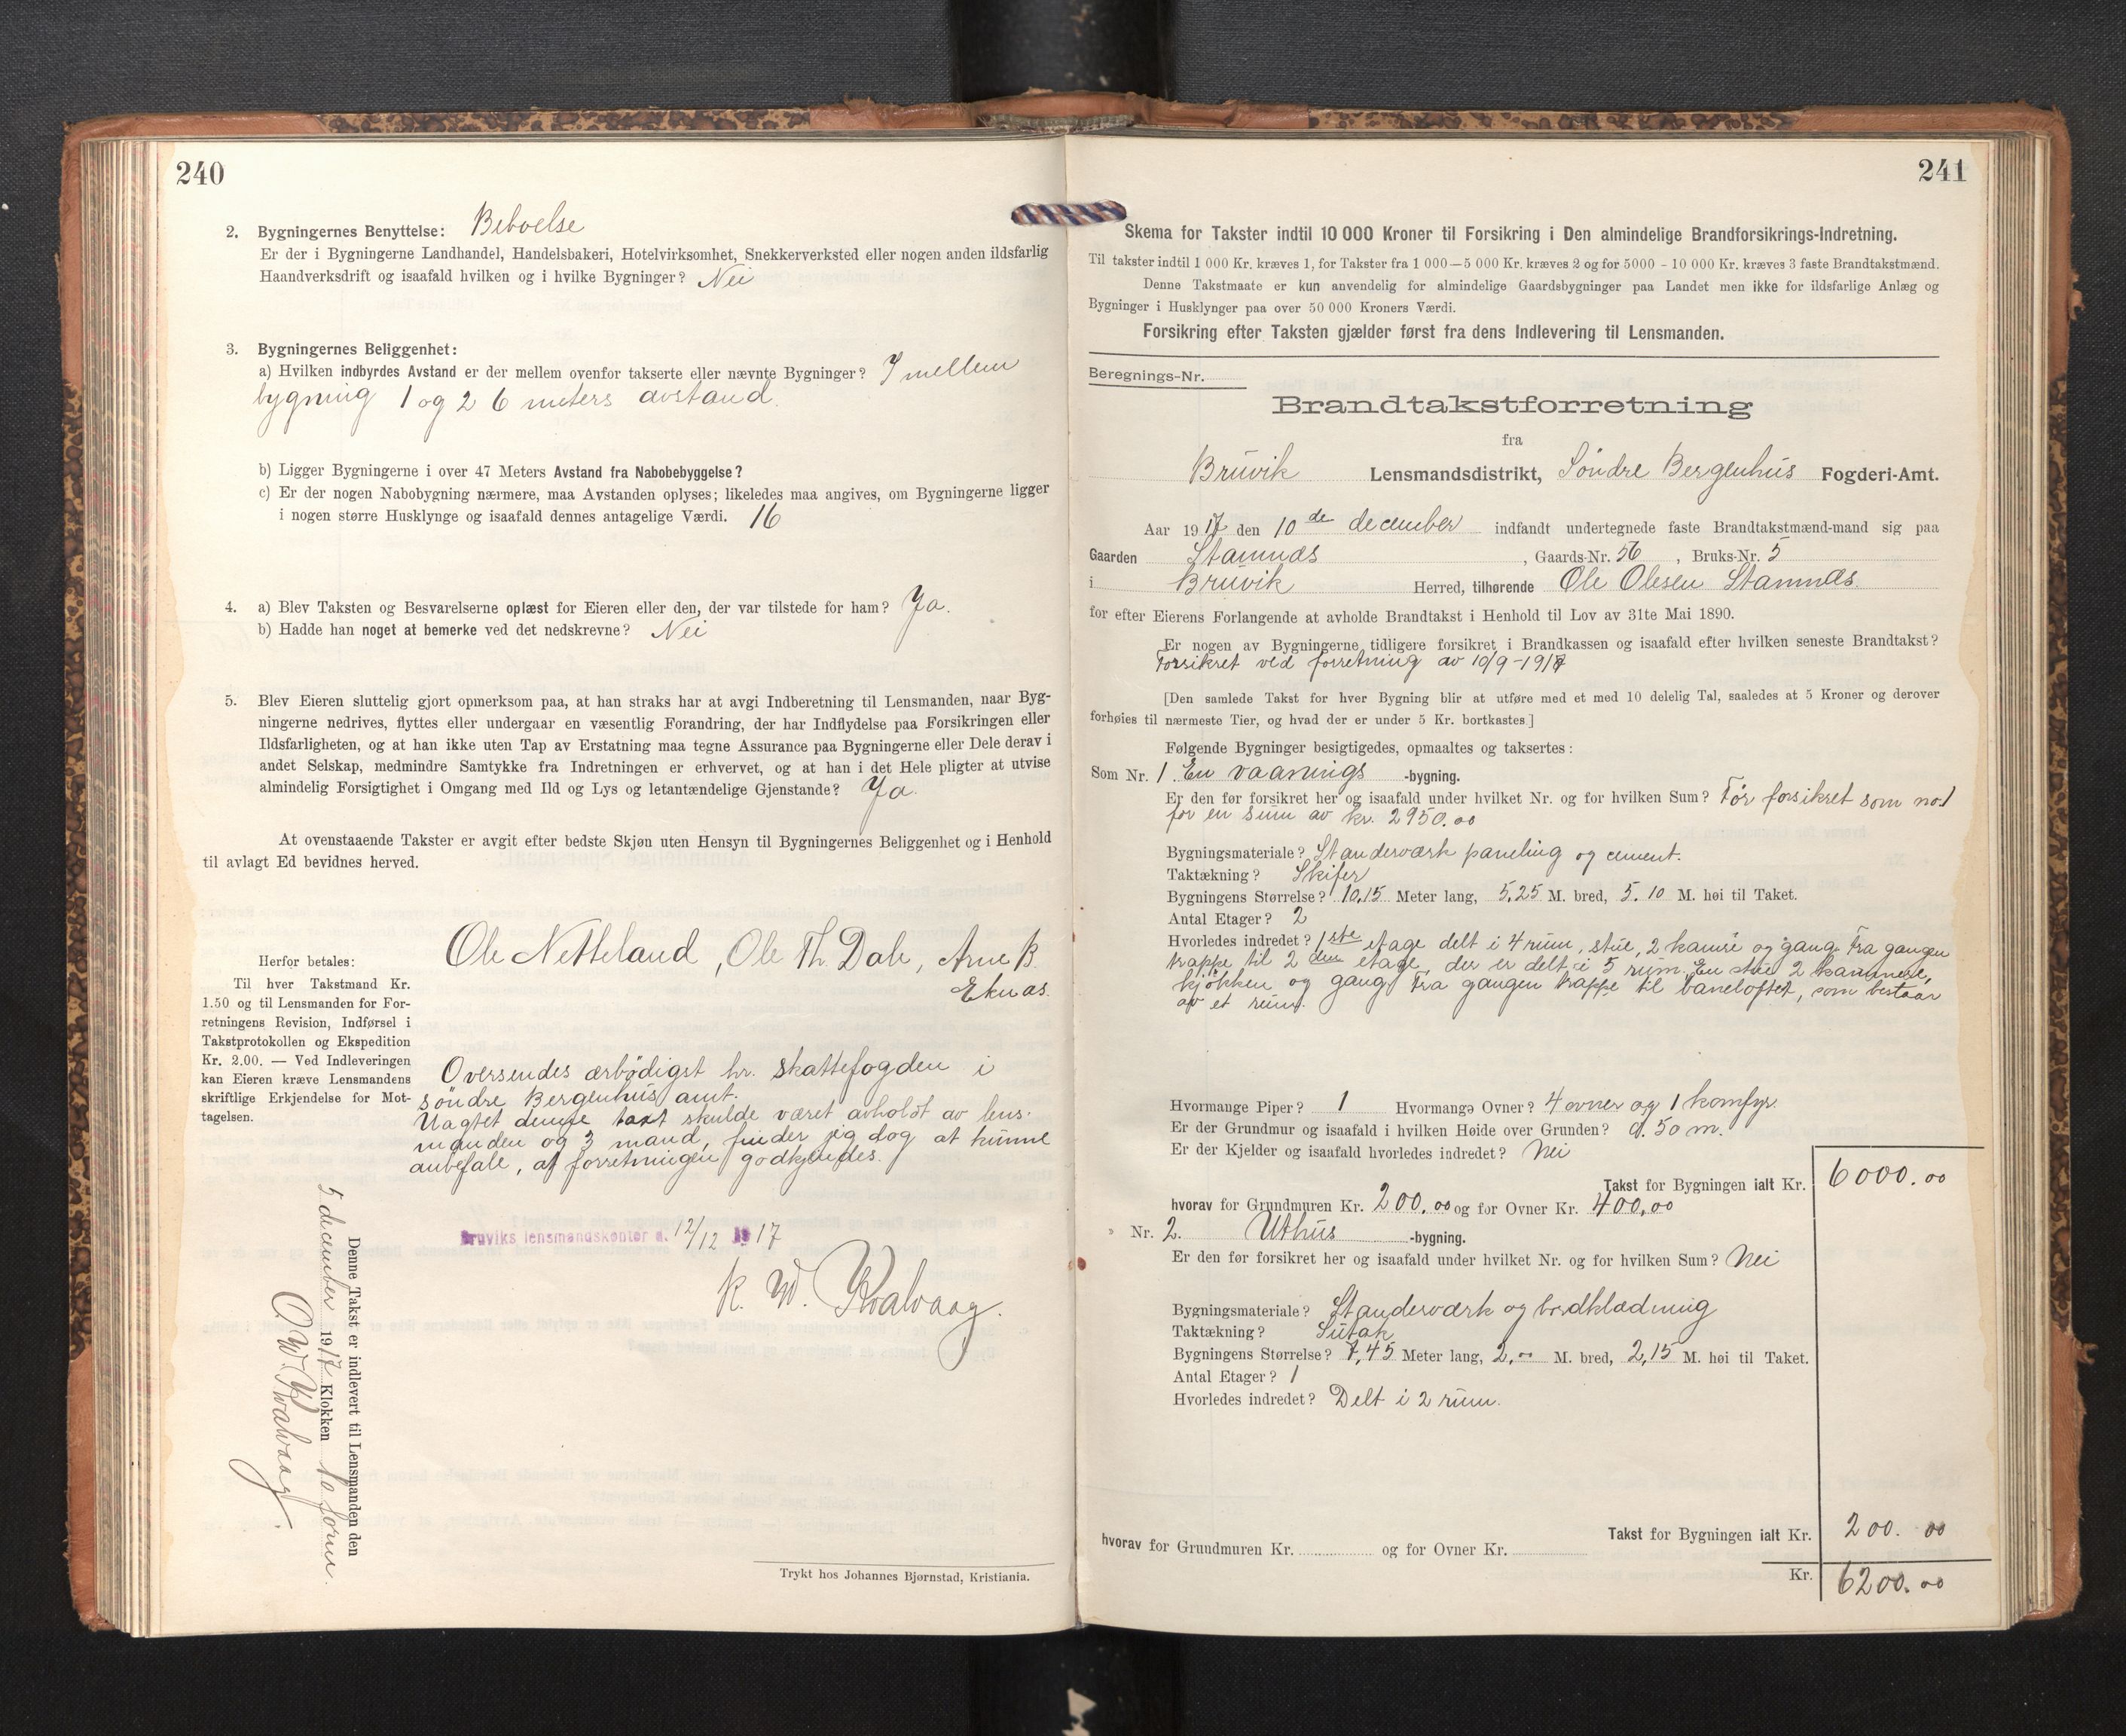 240
2. Bygningernes Benyttelse: Beboelse
Er der i Bygningerne Landhandel, Handelsbakeri, Hotelvirksomhet, Snekkerverksted eller nogen anden ildsfarlig
Haandverksdrift og isaafald hvilken og i hvilke Bygninger? Nei
3. Bygningernes Beliggenhet:
a) Hvilken indbyrdes Avstand er der mellem ovenfor takserte eller nævnte Bygninger? I mellem
bygning 1 og 2 6 meters avstand.
b) Ligger Bygningerne i over 47 Meters Avstand fra Nabobebyggelse?
c) Er der nogen Nabobygning nærmere, maa Avstanden oplyses; likeledes maa angives, om Bygningerne ligger
i nogen større Husklynge og isaafald dennes antagelige Værdi. 16
4. a) Blev Taksten og Besvarelserne oplæst for Eieren eller den, der var tilstede for ham? Ja.
b) Hadde han noget at bemerke ved det nedskrevne? Nei
5. Blev Eieren sluttelig gjort opmerksom paa, at han straks har at avgi Indberetning til Lensmanden, naar Byg-
ningerne nedrives, flyttes eller undergaar en væsentlig Forandring, der har Indflydelse paa Forsikringen eller
Ildsfarligheten, og at han ikke uten Tap av Erstatning maa tegne Assurance paa Bygningerne eller Dele derav i
andet Selskap, medmindre Samtykke fra Indretningen er erhvervet, og at han i det Hele pligter at utvise
almindelig Forsigtighet i Omgang med Ild og Lys og letantændelige Gjenstande? Ja.
At ovenstaaende Takster er avgit efter bedste Skjøn uten Hensyn til Bygningernes Beliggenhet og i Henhold
til avlagt Ed bevidnes herved.
Ole Netteland, Ole Th. Dale, Arne B.
Eknæs.
Herfor betales:
Til hver Takstmand Kr.
1.50 og til Lensmanden for For-
retningens Revision, Indførsel i
Takstprotokollen og Ekspedition
Kr. 2.00. — Ved Indleveringen
kan Eieren kræve Lensmandens
skriftlige Erkjendelse for Mot-
tagelsen.
Oversendes ærbødigst hr. skattefogden i
søndre Bergenhus amt.
Uagtet denne takst skulde været avholdt av lens-
manden og 3 mand, finder jeg dog at kunne
anbefale, at forretningen godkjendes.
Bruviks lensmandskontor d. 12/12 1917
K. W. Kvalvaag.
Denne Takst er indlevert til Lensmanden den
5 december 1917 Klokken 10 form.
O W Kvalvaag.
Trykt hos Johannes Bjørnstad, Kristiania.
241
Skema for Takster indtil 10 000 Kroner til Forsikring i Den almindelige Brandforsikrings-Indretning.
Til takster indtil 1 000 Kr. kræves 1, for Takster fra 1 000—5 000 Kr. kræves 2 og for 5000 - 10 000 Kr. kræves 3 faste Brandtakstmænd.
Denne Takstmaate er kun anvendelig for almindelige Gaardsbygninger paa Landet men ikke for ildsfarlige Anlæg og
Bygninger i Husklynger paa over 50 000 Kroners Værdi.
Forsikring efter Taksten gjælder først fra dens Indlevering til Lensmanden.
Beregnings-Nr.
Brandtakstforretning
fra
Bruvik Lensmandsdistrikt, Søndre Bergenhus Fogderi-Amt.
Aar 1917 den 10de december indfandt undertegnede faste Brandtakstmænd-mand sig paa
Gaarden Stamnæs, Gaards-Nr. 56, Bruks-Nr. 5
i Bruvik Herred, tilhørende Ole Olesen Stamnæs.
for efter Eierens Forlangende at avholde Brandtakst i Henhold til Lov av 31te Mai 1890.
Er nogen av Bygningerne tidligere forsikret i Brandkassen og isaafald efter hvilken seneste Brandtakst?
Forsikret ved forretning av 10/9-1917
[Den samlede Takst for hver Bygning blir at utføre med et med 10 delelig Tal, saaledes at 5 Kroner og derover
forhøies til nærmeste Tier, og hvad der er under 5 Kr. bortkastes.]
Følgende Bygninger besigtigedes, opmaaltes og taksertes:
Som Nr. 1. En vaanings -bygning.
Er den før forsikret her og isaafald under hvilket Nr. og for hvilken Sum? Før forsikret som no. 1
for en sum av kr. 2950.00
Bygningsmateriale? Standerværk paneling og cement.
Taktækning? Skifer
Bygningens Størrelse? 10,15 Meter lang, 5,25 M. bred, 5.10 M. høi til Taket.
Antal Etager? 2
Hvorledes indredet? 1ste etage delt i 4 rum, stue, 2 kamre og gang. Fra gangen
trappe til 2den etage, der er delt i 5 rum. En stue 2 kammere,
kjøkken og gang. Fra gangen trappe til baneloftet, som bestaar
av et rum.
Hvormange Piper? 1 Hvormange Ovner? 4 ovner og 1 komfyr.
Er der Grundmur og isaafald i hvilken Høide over Grunden? 0.50 m.
Er der Kjelder og isaafald hvorledes indredet? Nei
Takst for Bygningen ialt Kr. 6000.00
hvorav for Grundmuren Kr. 200.00 og for Ovner Kr. 400,00
Nr. 2. Uthus -bygning.
Er den før forsikret her og isaafald under hvilket Nr. og for hvilken Sum? Nei
Bygningsmateriale? Standerværk og bordklædning
Taktækning? Sutak
Bygningens Størrelse? 7,45 Meter lang, 2,00 M. bred, 2,15 M. høi til Taket.
Antal Etager? 1
Hvorledes indredet? Delt i 2 rum.
Takst for Bygningen ialt Kr. 200.00
hvorav for Grundmuren Kr. og for Ovner Kr.
Kr. 6200.00